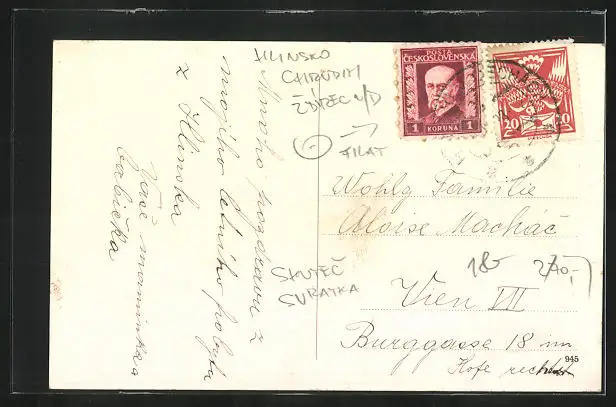 HLINSKO
CHRUDIM
ŽDÍREC N/D
FILAT
SKUTEČ
SVRATKA
Mnoho pozdravů z
mojího letního pobytu
z Hlinska
Vaše maminka a
babička
POŠTA
ČESKOSLOVENSKÁ
1 KORUNA 1
20 20
Wohlg Familie
Aloise Macháč
18-
Wien VII
Burggasse 18
Hofe rechts
945